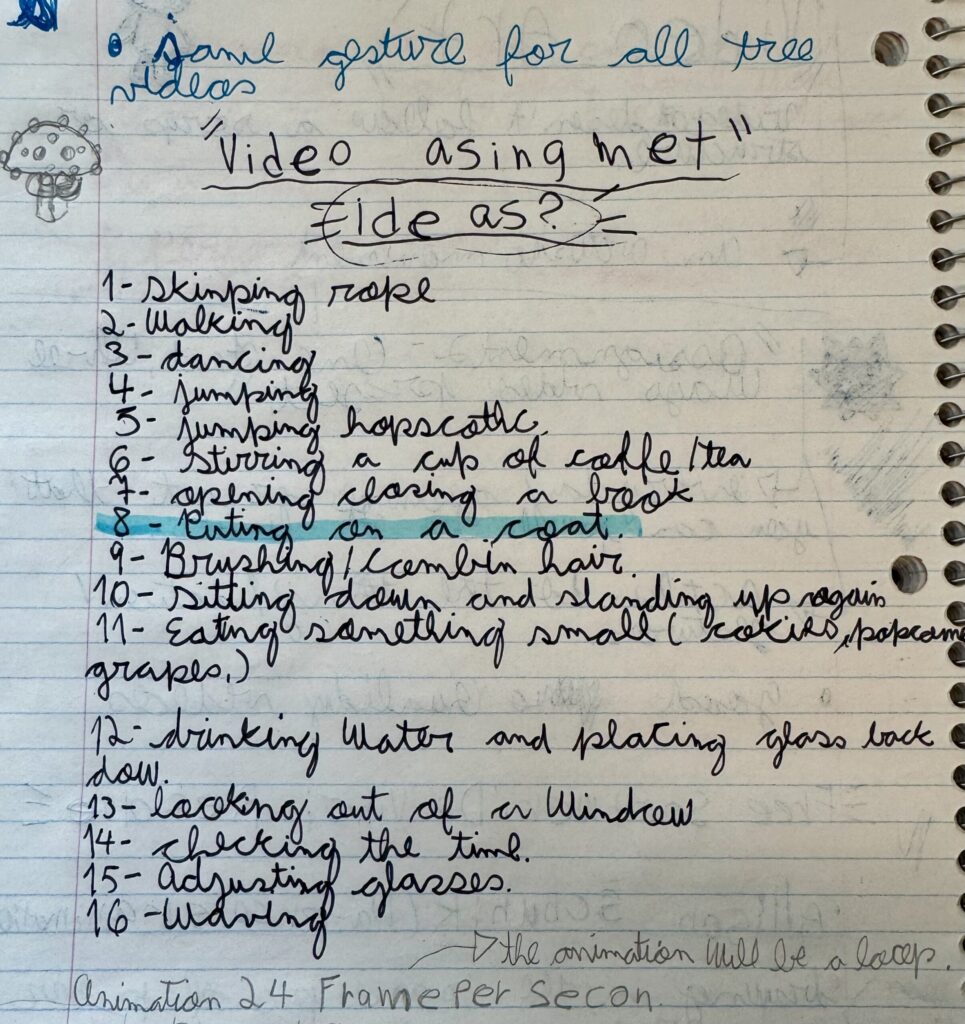 • Same gesture for all tree
videos
"Video asingmet"
ideas?
1- skinping rope
2- Walking
3- dancing
4- jumping
5- jumping hopscothc.
6- stirring a cup of coffe/tea
7- opening closing a book
8- Puting on a coat.
9- Brushing/combin hair.
10- sitting down and standing up again
11- Eating something small (cokies, popcorne
grapes.)
12- drinking Water and placing glass back
dow.
13- looking out of a Window
14- checking the time.
15- Adjusting glasses.
16- Waving
→ the animation Will be a loop.
Animation 24 Frame Per Secon.